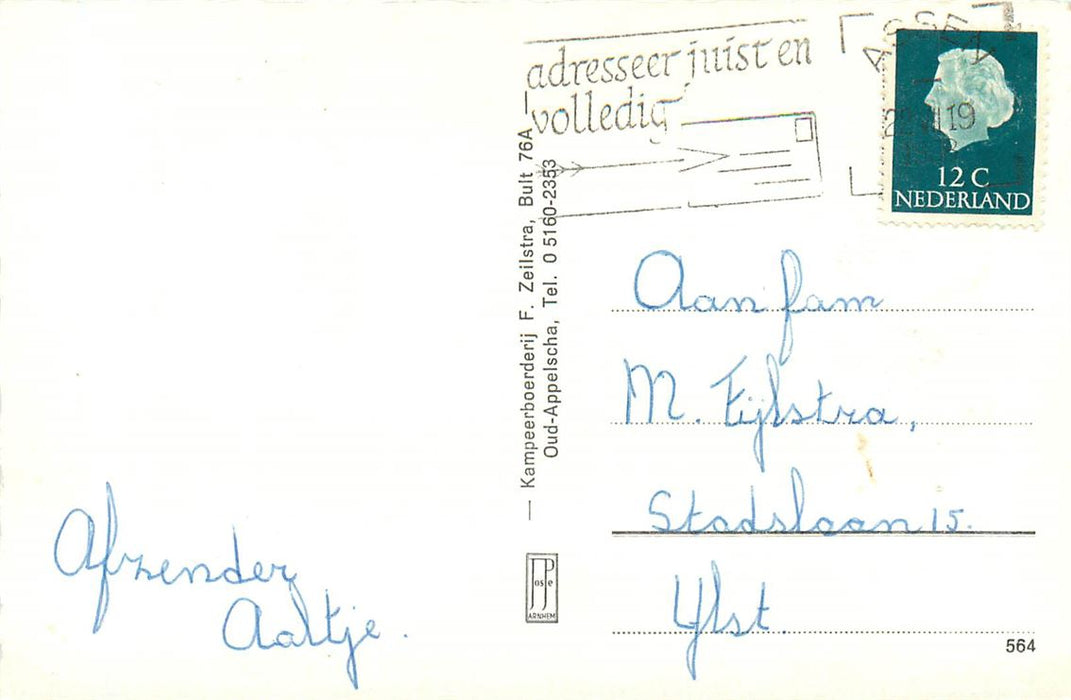 adresseer juist en
volledig
ASSEN
19
12 C
NEDERLAND
— Kampeerboerderij F. Zeilstra, Bult 76A,
Oud-Appelscha, Tel. 0 5160-2353
Aan fam
M. Fijlstra,
Stadslaan 15.
Ylst
Afzender
Aaltje.
JosPe
ARNHEM
564